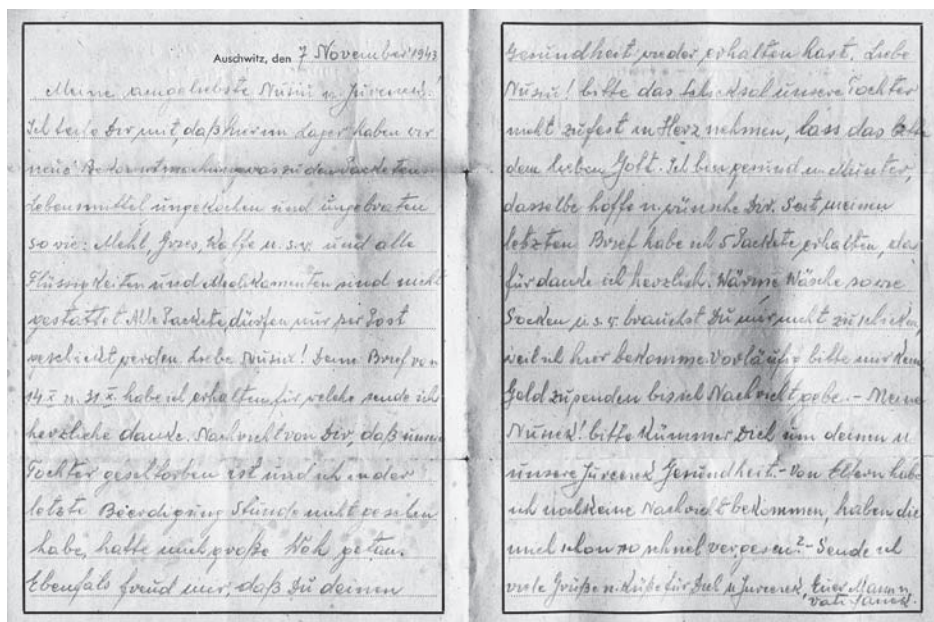 Auschwitz, den 7 November 1943
Meine amgeliebste Nusiu u. Jureczek!
Ich teile Dir mit, daß hier im Lager haben wir
neue Bekanntmachung was zu den Packeten
Lebensmittel ungekochen und ungebraten
sowie: Mehl, Gries, Kaffe u.s.w. und alle
Flüssigkeiten und Medikamenten sind nicht
gestattet. Alle Packete, dürfen nur per Post
geschickt werden. Liebe Nusiu! Deine Brief von
14 X u. 31 X. habe ich erhalten, für welche sende ich
herzliche danke. Nachricht von Dir, daß unsere
Tochter gesctorben ist und ich in der
letzte Beerdigung Stunde nicht gesehen
habe, hatte mich große Weh getan.
Ebenfals freud mir, daß Du deinen
Gesundheit wieder erhalten hast. Liebe
Nusiu! bitte das Schicksal unsere Tochter
nicht zufest in Herz nehmen, lass das bitte
dem lieben Gott. Ich bin gesund u. Munter,
dasselbe hoffe u. wünsche Dir. Seit meinen
letzten Brief habe ich 5 Packete erhalten, da
für danke ich herzlich. Wärme Wäsche sowie
Socken u.s.w. brauchst Du mir nicht zu schicken,
weil ich hier bekomme. Vorläufig bitte mir kein
Geld zu senden bis ich Nachricht gebe. – Meine
Nusiek! bitte Kümmer Dich um deinen u
unsere Jureczek Gesundheit. – Von Eltern habe
ich noch keine Nachricht bekommen, haben die
mich schon so schnel vergesen? – Sende ich
viele Grüße u. Küße für Dich u Jureczek, Euer Mann